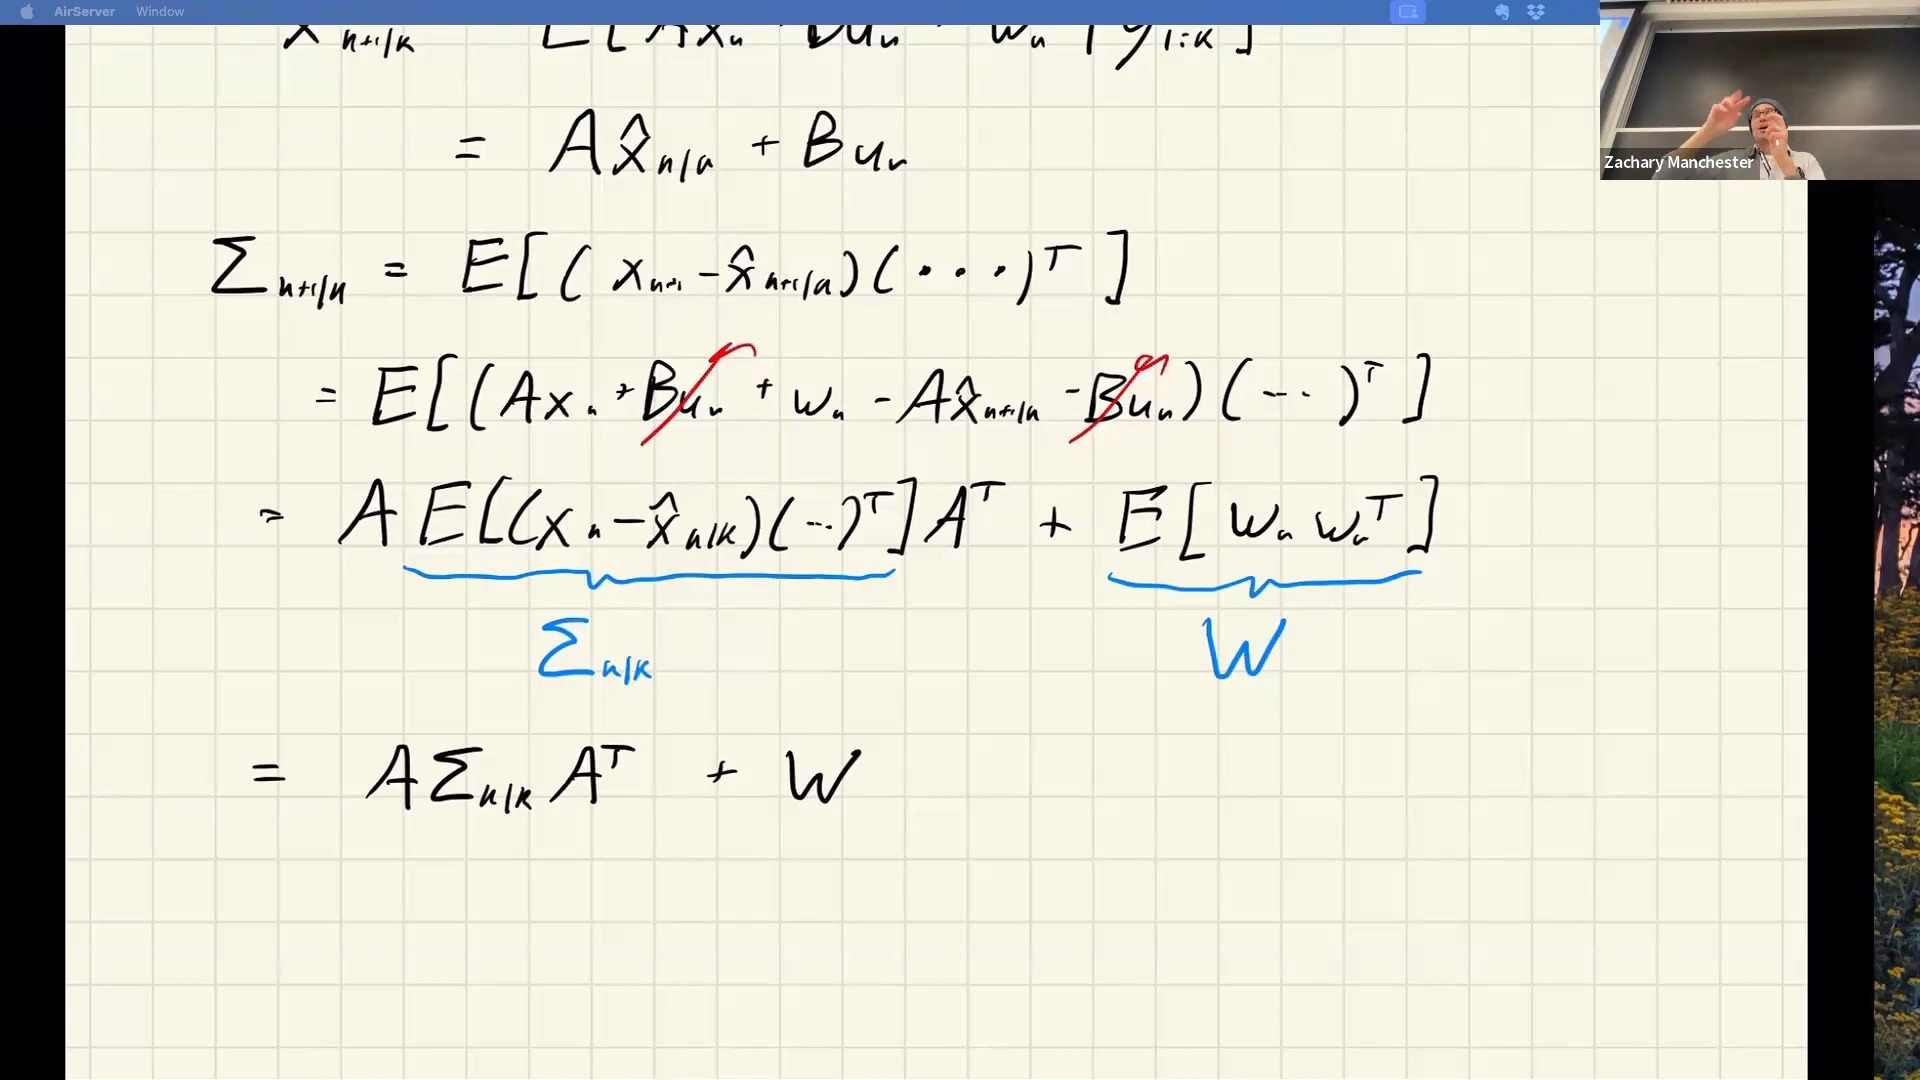 AirServer Window
x̂ₙ₊₁|ₖ = E[Axₙ + Buₙ + wₙ | y₁:ₖ]
= Ax̂ₙ|ₙ + Buₙ
Σₙ₊₁|ₙ = E[(xₙ₊₁ - x̂ₙ₊₁|ₙ)(···)ᵀ]
= E[(Axₙ + Buₙ + wₙ - Ax̂ₙ₊₁|ₙ - Buₙ)(···)ᵀ]
= A E[(xₙ - x̂ₙ|ₖ)(···)ᵀ] Aᵀ + E[wₙ wₙᵀ]
Σₙ|ₖ W
= AΣₙ|ₖ Aᵀ + W
Zachary Manchester